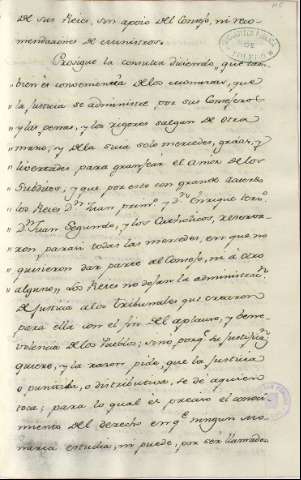 de sus Reies, sin apoio del Consejo, ni reco-
mendaziones de Ministros.
Prosigue la consulta diciendo, que tam-
bien es conveniencia de los monarcas, que
" la Justicia se administre por sus Consejeros
" y las penas, y los rigores salgan de otra
" mano, y de la suia solo mercedes, gracias, y
" libertades, para grangear el amor de los
" subditos, y que por esto con grande acuerdo
" los Reies Dn Juan primo y Dn Enrique terzo
" Dn Juan Segundo, y los Catholicos, reserva-
" ron para si todas las mercedes, en que no
" quisieron dar parte al Consejo, ni à otro
" alguno, los Reies no dejan la administracn
de Justicia a los tribunales que crearon
para ella con el fin del aplauso, y bene-
volencia de los Pueblos, sino porqe su
quiere, y la razon pide, que la Justicia
o punitiva, o distributiva, se dè a quien
toca; para lo qual es preciso el conoci-
miento del derecho en qe ningun Mo-
narca estudia, ni puede, por ser llamados